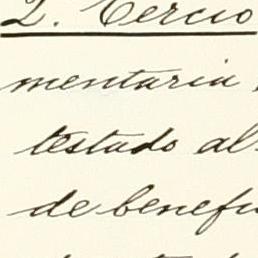 2. Tercio
mentaria
testado al
de benefi